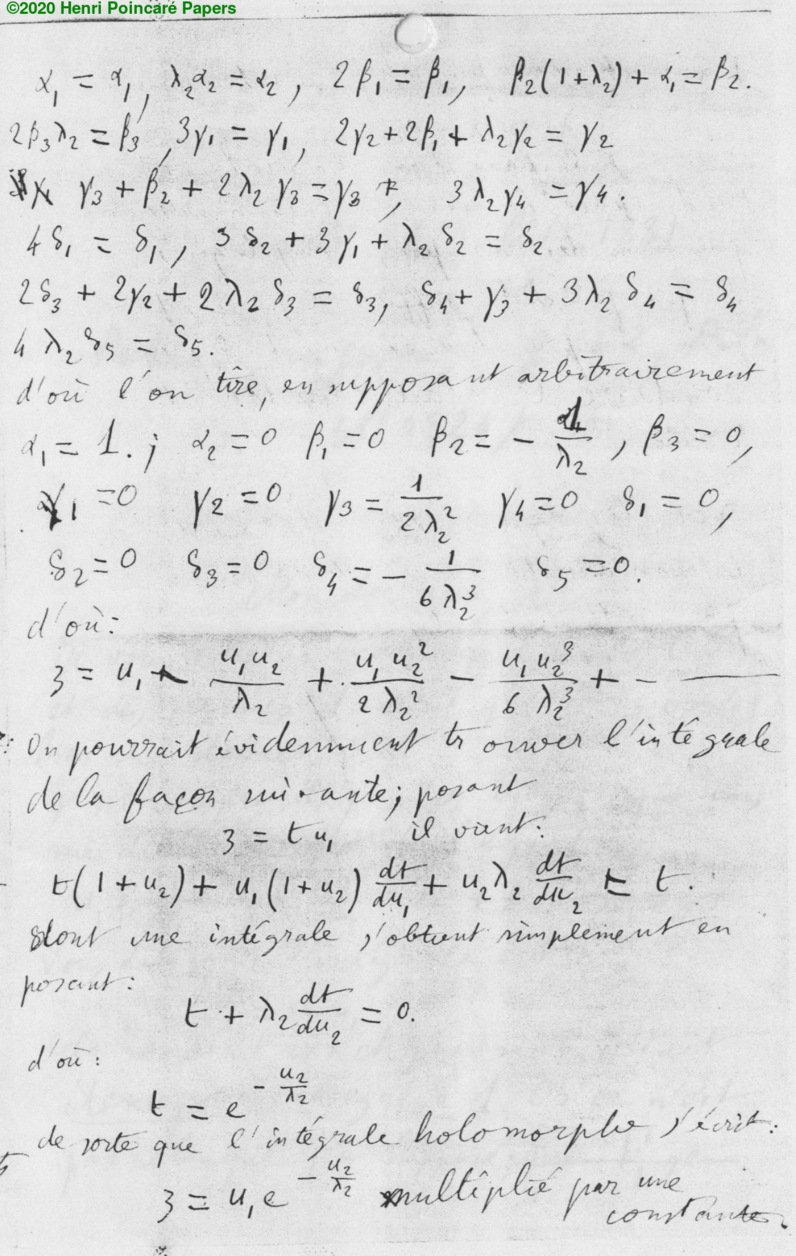 ©2020 Henri Poincaré Papers
α₁ = α₁, λ₂α₂ = α₂, 2β₁ = β₁, β₂(1+λ₂) + α₁ = β₂.
2β₃λ₂ = β₃, 3γ₁ = γ₁, 2γ₂ + 2β₁ + λ₂γ₂ = γ₂
γ₃ + β₂ + 2λ₂γ₃ = γ₃, 3λ₂γ₄ = γ₄.
4δ₁ = δ₁, 3δ₂ + 3γ₁ + λ₂δ₂ = δ₂
2δ₃ + 2γ₂ + 2λ₂δ₃ = δ₃, δ₄ + γ₃ + 3λ₂δ₄ = δ₄
4λ₂δ₅ = δ₅.
d'où l'on tire, en supposant arbitrairement
α₁ = 1. ; α₂ = 0 β₁ = 0 β₂ = - 1/λ₂, β₃ = 0,
γ₁ = 0 γ₂ = 0 γ₃ = 1/2λ₂² γ₄ = 0 δ₁ = 0,
δ₂ = 0 δ₃ = 0 δ₄ = - 1/6λ₂³ δ₅ = 0.
d'où:
z = u₁ - u₁u₂/λ₂ + u₁u₂²/2λ₂² - u₁u₂³/6λ₂³ + - —
On pourrait évidemment trouver l'intégrale
de la façon suivante; posant
z = t u₁ il vient:
t(1+u₂) + u₁(1+u₂) dt/du₁ + u₂λ₂ dt/du₂ = t.
dont une intégrale s'obtient simplement en
posant:
t + λ₂ dt/du₂ = 0.
d'où:
t = e^(-u₂/λ₂)
de sorte que l'intégrale holomorphe s'écrit:
z = u₁e^(-u₂/λ₂) multiplié par une
constante.